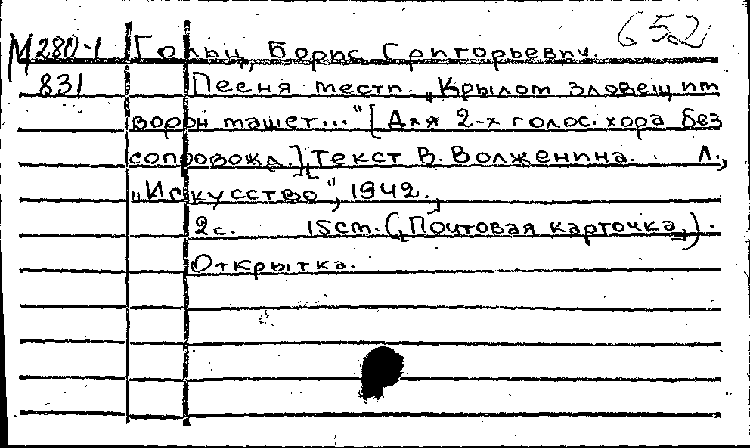 652
М280-1 Гольц, Борис Григорьевич.
831 Песня мести. „Крылом зловещим
ворон машет..." [Для 2-х голос. хора без
сопровожд.] Текст В. Волженина. Л.,
„Искусство", 1942.
2с. 15см. ([Почтовая карточка]).
Открытка.